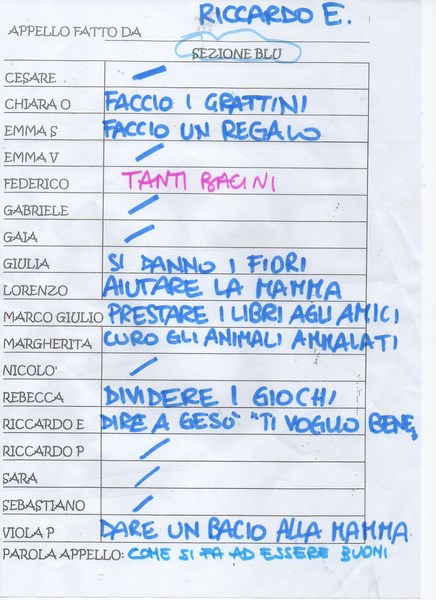 APPELLO FATTO DA RICCARDO E.
SEZIONE BLU
CESARE /
CHIARA O FACCIO I GRATTINI
EMMA S FACCIO UN REGALO
EMMA V /
FEDERICO TANTI BACINI
GABRIELE /
GAIA /
GIULIA SI DANNO I FIORI
LORENZO AIUTARE LA MAMMA
MARCO GIULIO PRESTARE I LIBRI AGLI AMICI
MARGHERITA CURO GLI ANIMALI AMMALATI
NICOLO' /
REBECCA DIVIDERE I GIOCHI
RICCARDO E DIRE A GESÙ "TI VOGLIO BENE"
RICCARDO P /
SARA /
SEBASTIANO /
VIOLA P DARE UN BACIO ALLA MAMMA
PAROLA APPELLO: COME SI FA AD ESSERE BUONI